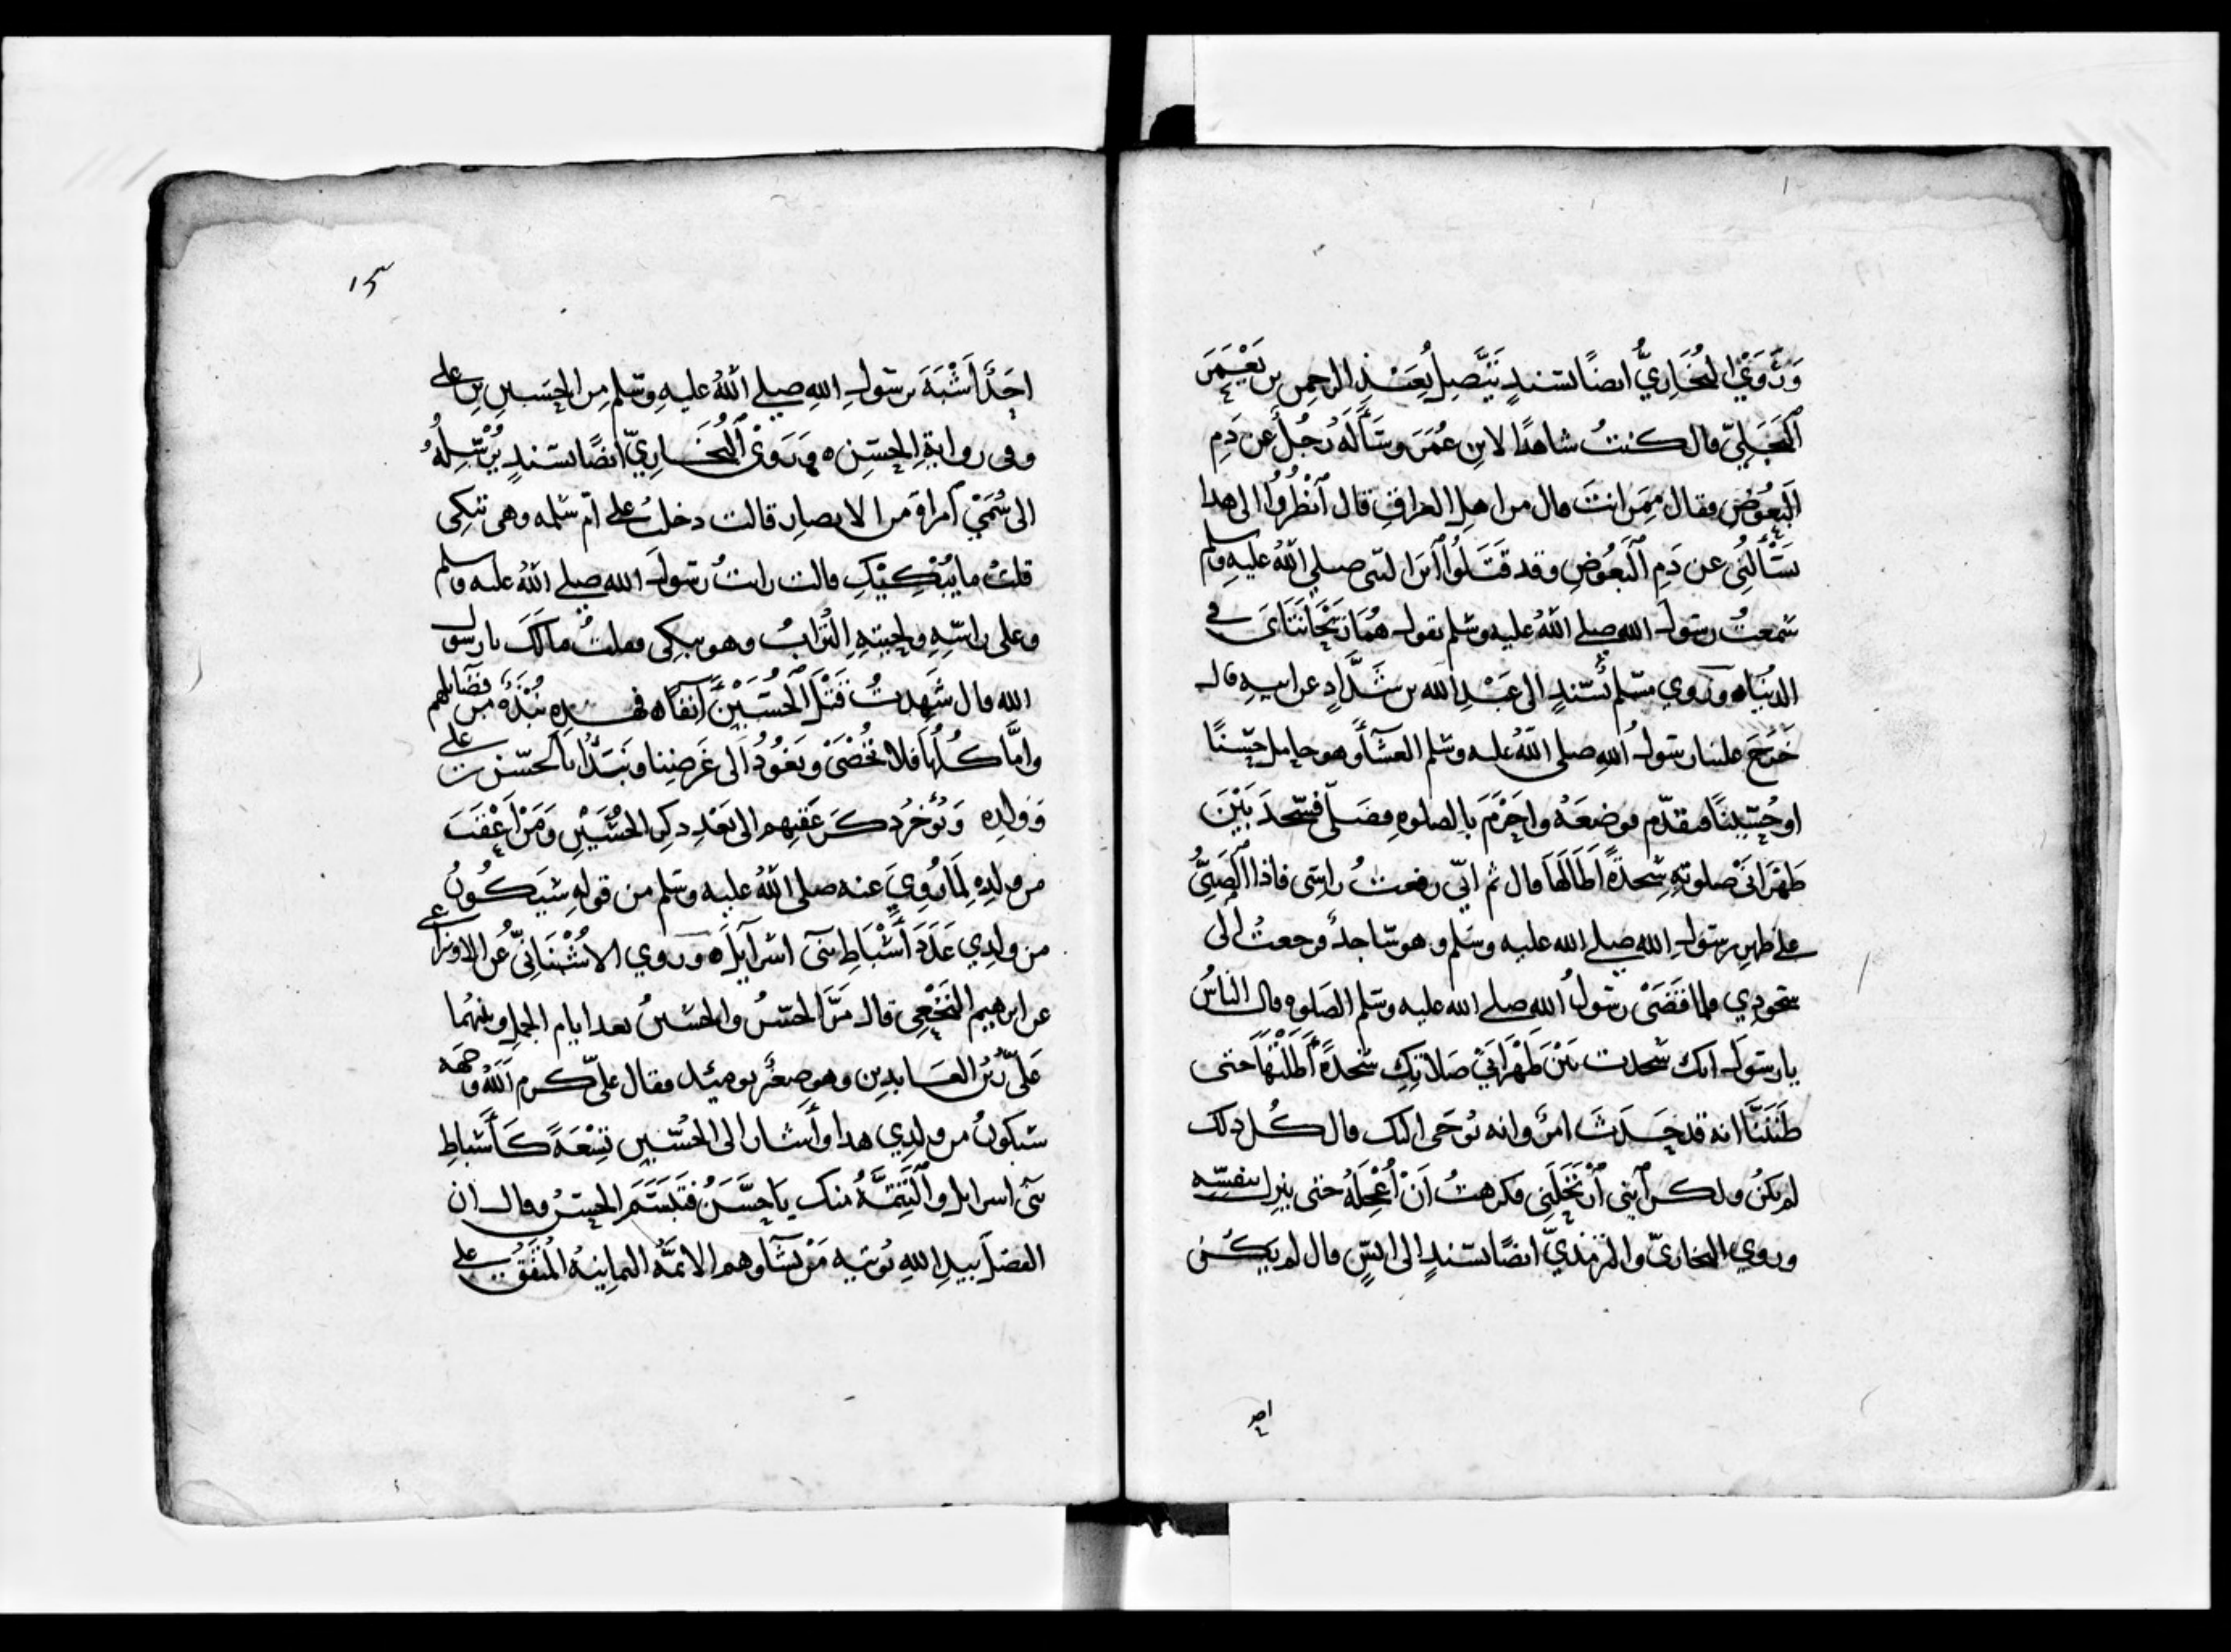 وَرَوَىٰ البُخَارِيُّ ايضًا بسندٍ يَتَّصِلُ بِعَبْدِ الرحمن بن يَعْمَرَ
البَجَلِيّ قال كنتُ شاهدًا لابنِ عُمَرَ وسَأَلَهُ رَجُلٌ عن دَمِ
البَعُوضِ فقال مِمَّن انتَ قال من اهلِ العراقِ قال اُنْظُرُوا الى هذا
يَسْأَلُنِي عن دَمِ البَعُوضِ وقد قَتَلُوا ابْنَ النبي صلى اللهُ عليهِ وسلم
سمعتُ رسولَ الله صلى اللهُ عليه وسلم يقول هُمَا رَيْحَانَتَايَ في
الدنيا ه وروي مسلم بسندٍ الى عَبْدِ الله بن شَدَّادٍ عن ابيهِ قال
خَرَجَ علينا رسولُ اللهِ صلى اللهُ عليه وسلم العشآءَ وهو حامل حسنًا
او حُسَيْنًا فتقدّم فوضعَهُ واحْرَمَ بالصلوهِ فصَلّى فسجدَ بَيْنَ
ظَهْرَانَيْ صلوتِهِ سجدةً اطَالَهَا قال ثم انّي رفعتُ راسي فاذا الصَّبيُّ
على ظهرِ رسولِ الله صلى الله عليه وسلم وهو ساجدٌ فرجعتُ الى
سجودِي فلما قَضَىٰ رسولُ الله صلى الله عليه وسلم الصلوه قال الناسُ
يا رسولَ انك سجدت بَيْنَ ظَهْرَانَيْ صَلاتِكِ سجدةً اَطَلْتَهَا حتى
ظَنَنَّا انه قد حَدَثَ امرٌ وانه يُوحَى اليك قال كُل ذلك
لم يكنْ ولكن اِبْنِي اْرتَحَلَنِي فكرهتُ اَنْ اُعْجِلَهُ حتى ينزل بنفسِه
وروي البخاريّ والترمذيّ ايضًا بسندٍ الى انسٍ قال لم يكُن
احد
١٥
احَدٌ اَشْبَهَ برسولِ اللهِ صلى اللهُ عليهِ وسلم مِن الحُسَينِ بن على
وفى روايةِ الحسَنِ ه وَرَوَىٰ البُخَارِيّ ايضًا بسندٍ يُرْسِلُهُ
الى سُمَيْ امراةٍ من الانصارِ قالت دخلتُ على امّ سلمه وهي تبكِى
قلتُ ما يُبْكِيْكِ قالت رايتُ رسولَ الله صلى اللهُ عليه وسلم
وعلى راسِهِ ولحيتِهِ التُرابُ وهو يبكِى فقلتُ ما لكَ يا رسول
الله قال شَهِدتُ قَتْلَ الحُسَيْنِ آنفًا ه فهذِهِ نُبْذَةٌ مِن فضَآئِلهم
وامَّا كُلُّهَا فلا تُحْصَىٰ ونَعُودُ اَلى غَرضِنا ونَبْدَأُ بالحسن بن على
وَوَلدِه وَنُؤخرُ ذكرَ عَقبِهم الى بَعْدِ ذكرِ الحُسَيْنِ وَمَنْ اَعْقَبَ
من ولدِهِ لِمَا رُوِيَ عنه صلى اللهُ عليه وسلم من قولهِ سَيَكُونُ
من ولدِي عَدَدَ اَسْبَاطِ بنى اسرآيل ه وروي الاُشْنَانِيّ عُن الاوزاعى
عن ابرهيم النَخَعِى قال مَرَّ الحسنُ والحسينُ بعد ايام الجمل وبينهُما
عَلىّ زَيْنُ العَابدِين وهو صغيرٌ يوميئذ فقال علىّ كرم اللهُ وجهه
سيكونُ من ولدِي هذا وأشار الى الحُسَين تِسْعَةً كَأَسْباطِ
بنى اسرايل والتَّتِمَّةُ منك يا حَسَنُ فتَبَسَّمَ الحسنُ وقال ان
الفضلَ بيدِ اللهِ يُوتيهِ مَنْ يشآ وهم الائمَّهُ الثمانيةُ المُتفَقُ على